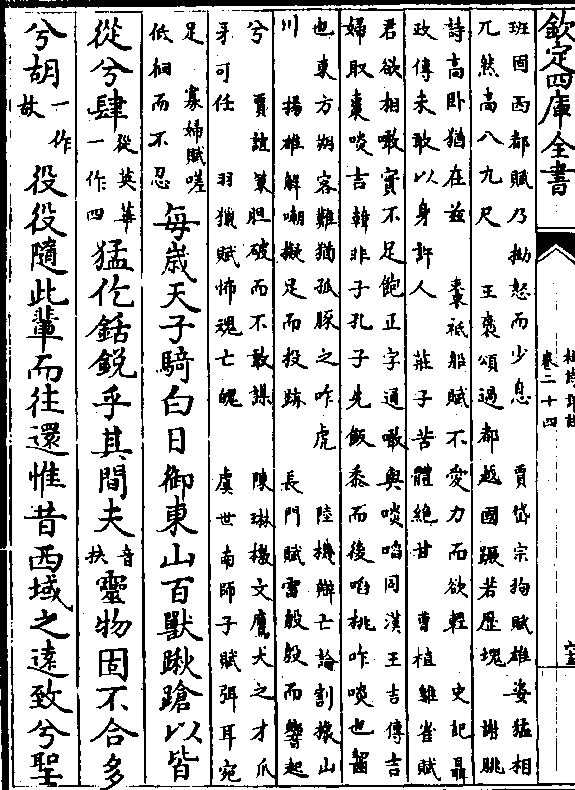 欽定四庫全書
杜詩詳註
卷二十四
班固西都賦乃拗怒而少息　賈岱宗狗賦雄姿猛相
兀然高八九尺　王褒頌過都越國蹶若歷塊　謝朓
詩高卧猶在兹　棗祗船賦不愛力而欲輕　史記聶
政傳未敢以身許人　莊子苦體絶甘　曹植雞雀賦
君欲相噉實不足飽正字通噉與啖啗同漢王吉傳吉
婦取棗啖吉韓非子孔子先飯黍而後啗桃咋啖也齧
也東方朔客難猶孤豚之咋虎　陸機辯亡論割據山
川　揚雄解嘲擬足而投跡　長門賦雷殷殷而響起
兮　賈誼策胆破而不敢謀　陳琳檄文鷹犬之才爪
牙可任　羽獵賦怖魂亡魄　虞世南師子賦弭耳宛
足　寡婦賦嗟
低徊而不忍
每歲天子騎白日御東山百獸蹴蹌以皆
從兮肆從英華一作四猛仡銛銳乎其間夫音扶靈物固不合多
兮胡一作故役役隨此輩而往還惟昔西域之遠致兮聖